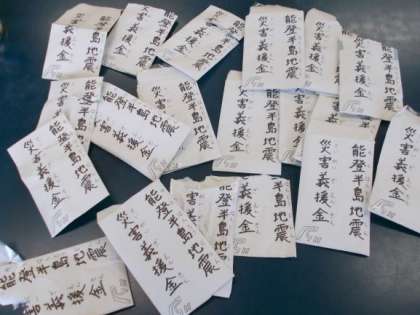 半島地震
災害義援金
能登半島地震
災害義援金
能登半島地震
能登半島地震
災害義援金
能登半島地震
災害義援金
能登半島地震
災害義援金
能登半島地震
災害義援金
能登半島地震
災害義援金
能登半島地震
災害義援金
能登半島地震
災害義援金
能登半島地震
災害義援金
能登半島地震
義援金
能登半島地震
害義援金